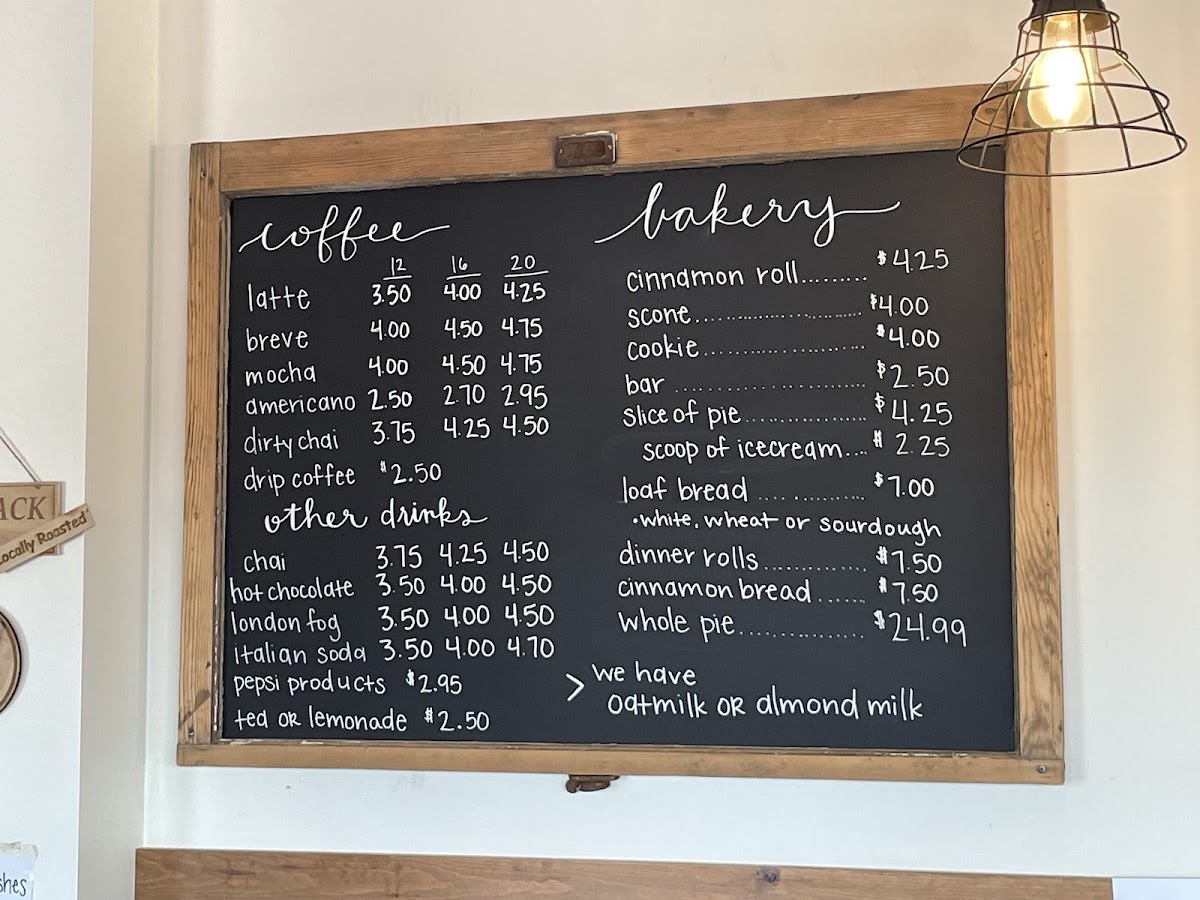 coffee
12 16 20
latte 3.50 4.00 4.25
breve 4.00 4.50 4.75
mocha 4.00 4.50 4.75
americano 2.50 2.70 2.95
dirty chai 3.75 4.25 4.50
drip coffee $2.50
other drinks
chai 3.75 4.25 4.50
hot chocolate 3.50 4.00 4.50
london fog 3.50 4.00 4.50
italian soda 3.50 4.00 4.70
pepsi products $2.95
tea or lemonade $2.50
bakery
cinnamon roll......... $4.25
scone........................ $4.00
cookie....................... $4.00
bar ........................... $2.50
slice of pie................. $4.25
scoop of icecream.... $2.25
loaf bread .... ........... $7.00
•white, wheat or sourdough
dinner rolls............... $7.50
cinnamon bread ...... $7.50
whole pie.................. $24.99
> we have
oatmilk OR almond milk
ACK
Locally Roasted
shes